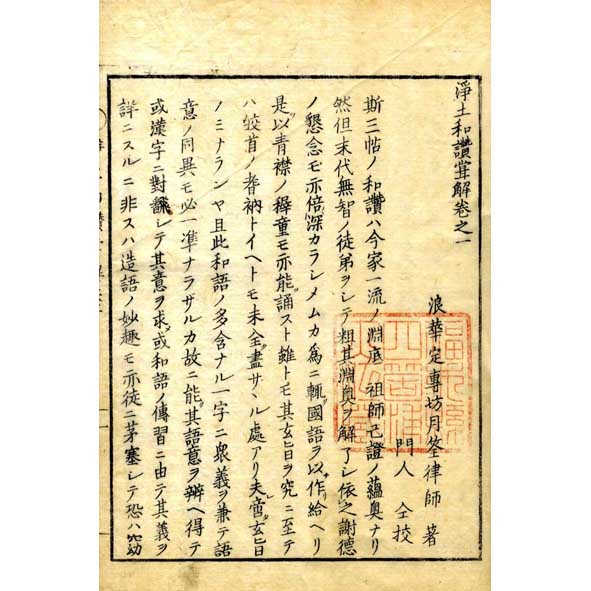 淨土和讃葺解卷之一
浪華定專坊月筌律師 著
門人 仝挍
斯三帖ノ和讃ハ今家一流ノ淵底祖師己證ノ蘊奧ナリ
然但末代無智ノ徒弟ヲシテ粗其淵奧ヲ解了シ依之謝德
ノ懇念モ亦倍深カラシメムカ爲ニ輒國語ヲ以作給ヘリ
是以青襟ノ稺童モ亦能誦スト雖トモ其玄旨ヲ究ニ至テ
ハ皎首ノ耆衲トイヘトモ未全盡サヽル處アリ夫啻玄旨
ノミナランヤ且此和語ノ多含ナル一字ニ衆義ヲ兼テ語
意ノ同異モ必一準ナラザルカ故ニ能其語意ヲ辨ヘ得テ
或漢字ニ對飜シテ其意ヲ求或和語ノ傳習ニ由テ其義ヲ
詳ニスルニ非スハ造語ノ妙趣モ亦徒ニ茅塞シテ恐ハ穴幼